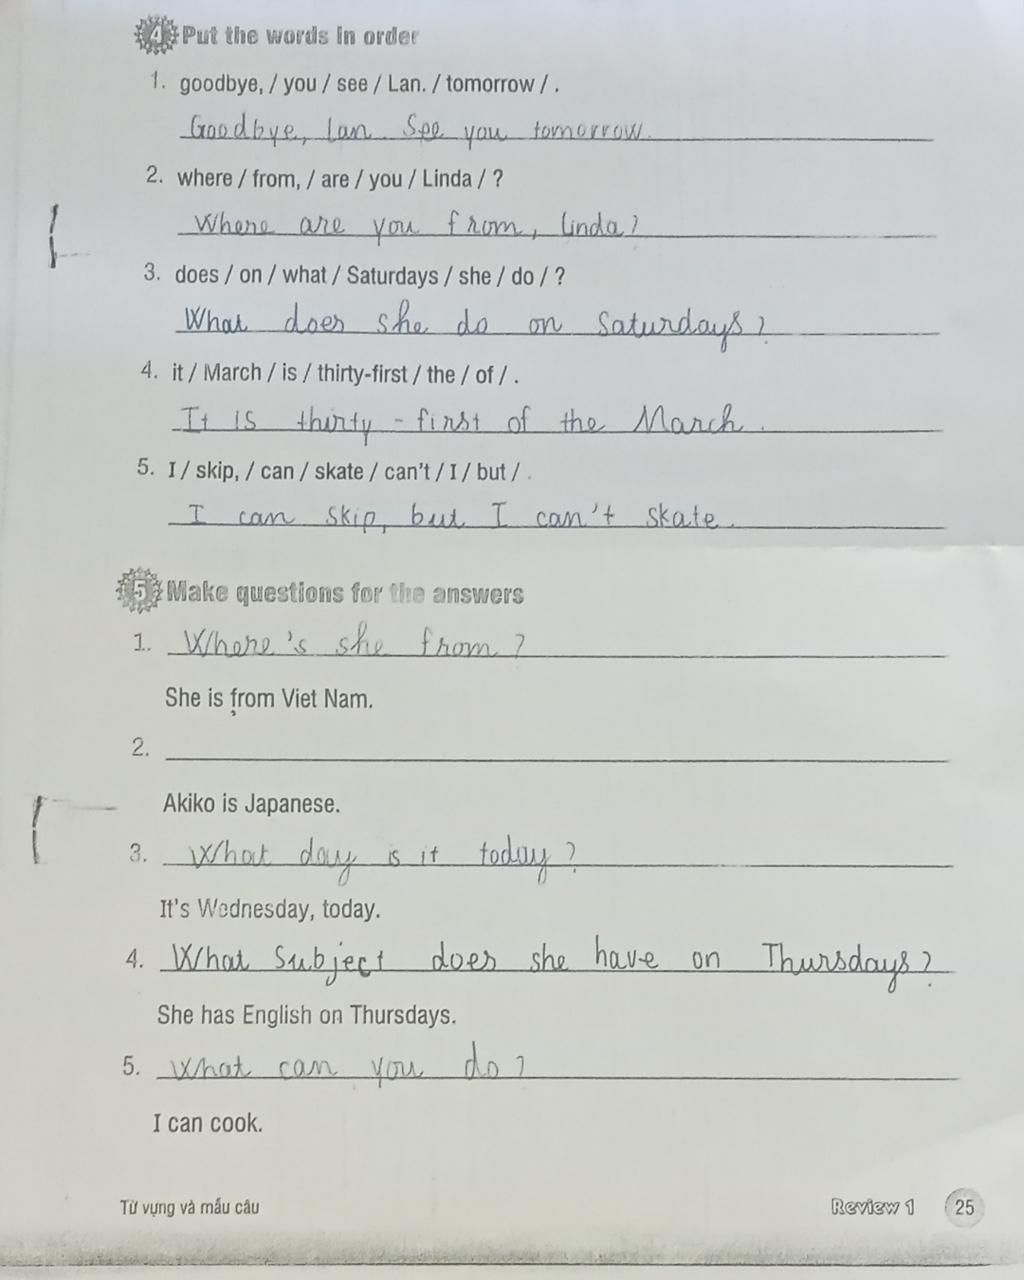 4 Put the words in order
1. goodbye, / you / see / Lan. / tomorrow / .
Goodbye, Lan. See you tomorrow.
2. where / from, / are / you / Linda / ?
Where are you from, Linda?
3. does / on / what / Saturdays / she / do / ?
What does she do on Saturdays?
4. it / March / is / thirty-first / the / of / .
It is thirty-first of the March.
5. I / skip, / can / skate / can't / I / but / .
I can skip, but I can't skate.
5 Make questions for the answers
1. Where's she from?
She is from Viet Nam.
2.
Akiko is Japanese.
3. What day is it today?
It's Wednesday, today.
4. What Subject does she have on Thursdays?
She has English on Thursdays.
5. What can you do?
I can cook.
Từ vựng và mẫu câu Review 1 25